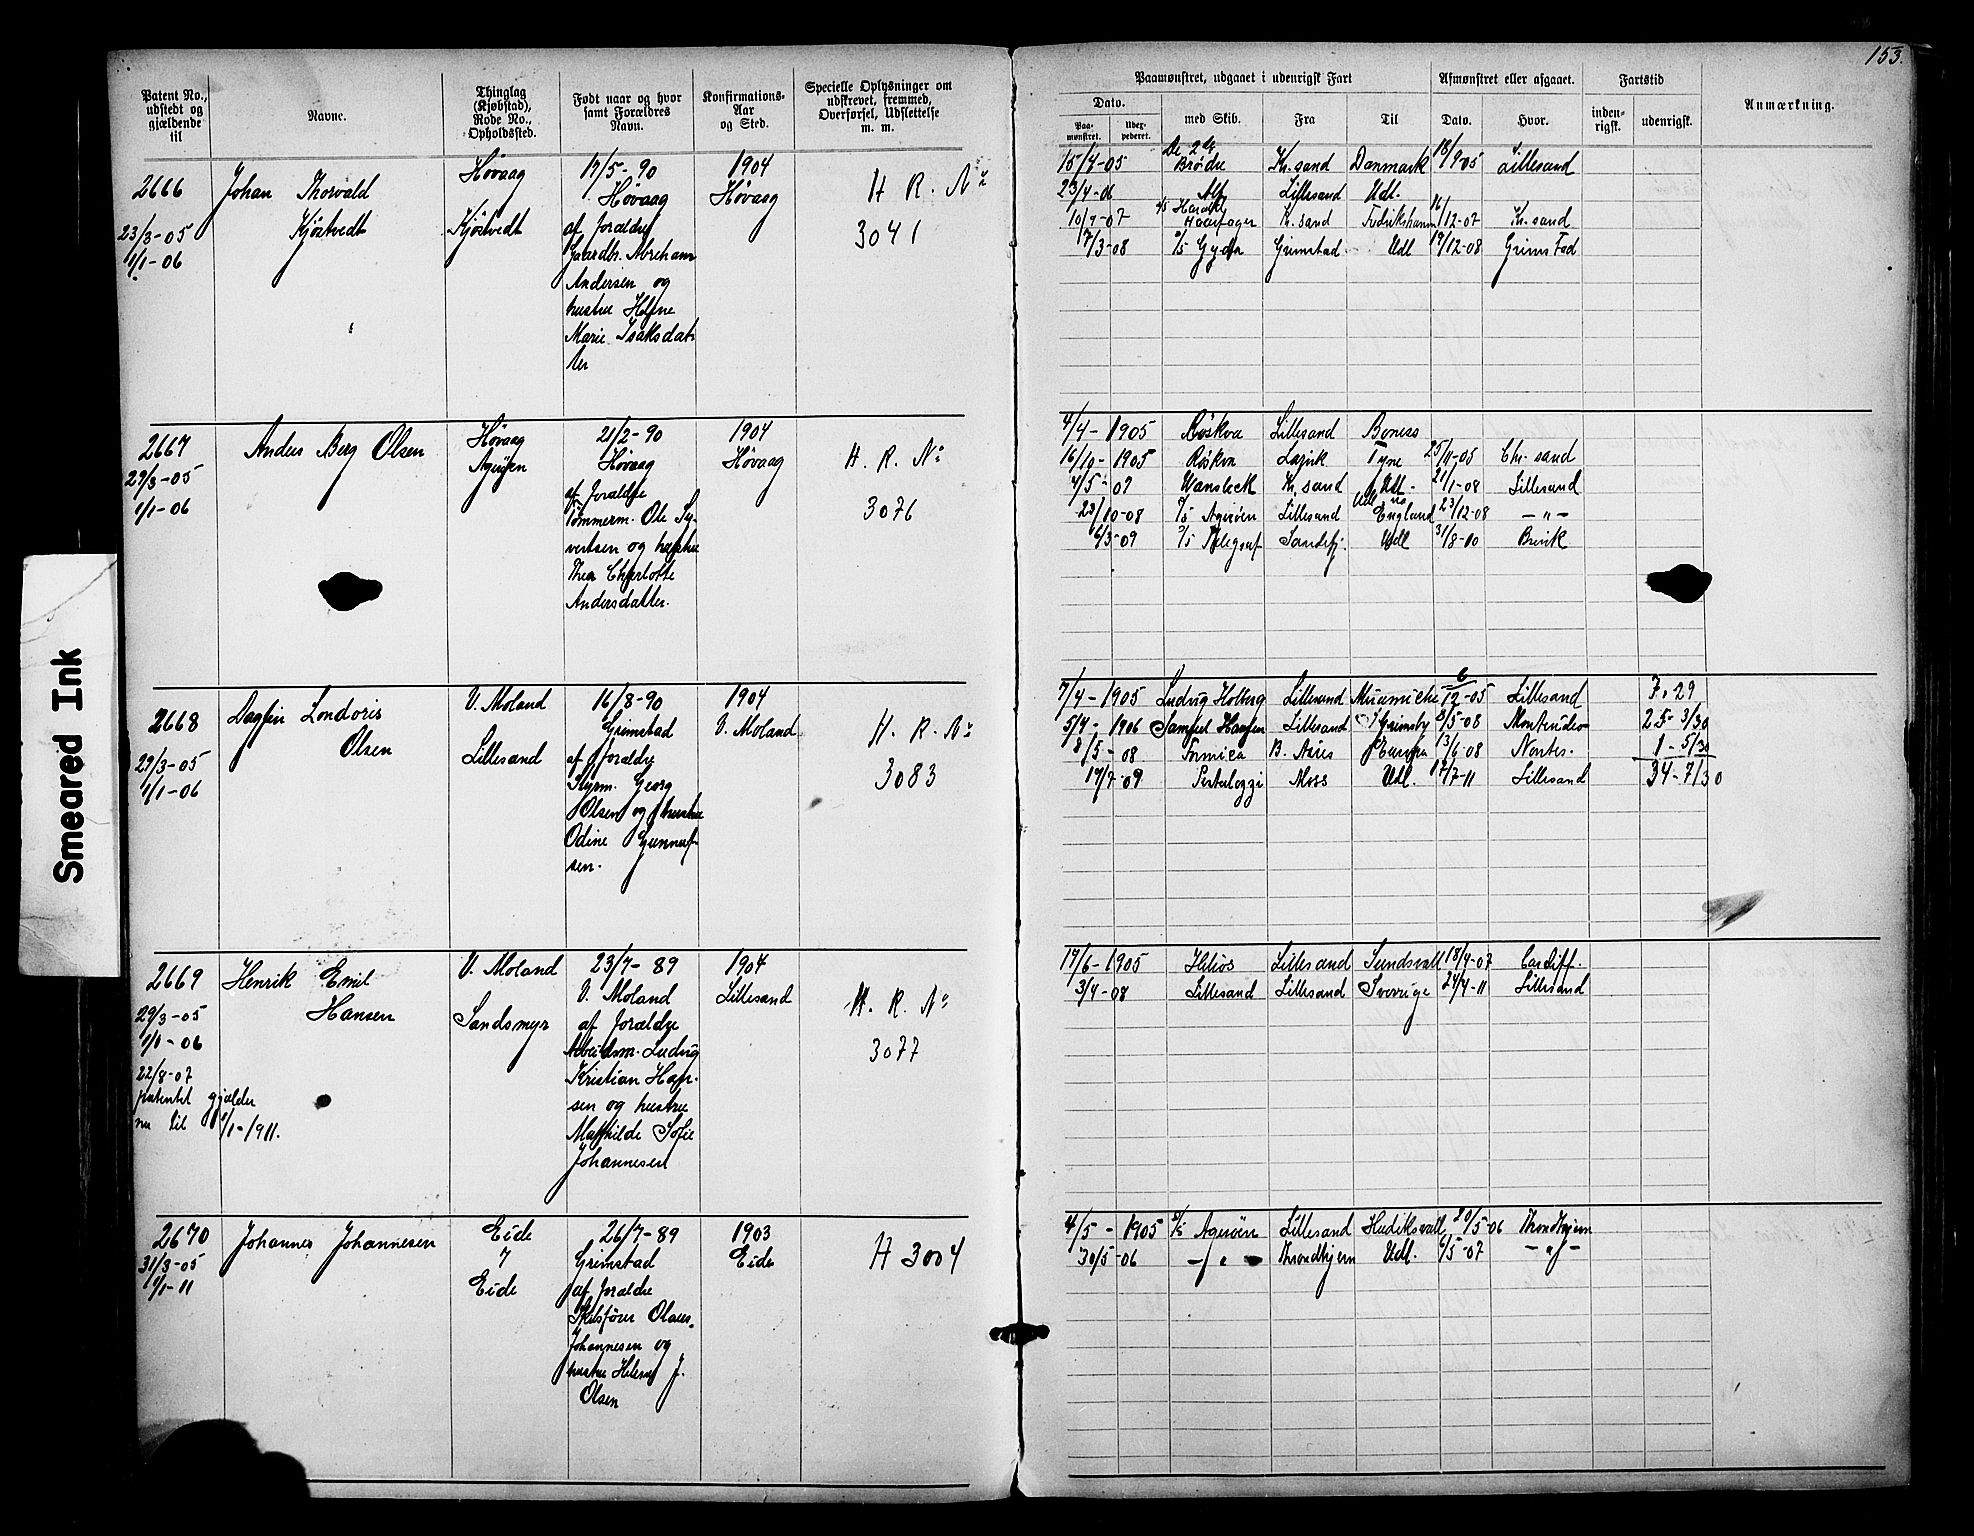 153.
Smeared Ink
Patent No., udstedt og gjældende til
Navne.
Thinglag (Kjøbstad), Rode No., Opholdssted.
Født naar og hvor samt Forældres Navn.
Konfirmations- Aar og Sted.
Specielle Oplysninger om udskrevet, fremmed, Overførsel, Udslettelse m. m.
Paamønstret, udgaaet i udenrigsk Fart
Afmønstret eller afgaaet.
Fartstid
Anmærkning.
Dato.
Paa- mønstret.
Udex- pederet.
med Skib.
Fra
Til
Dato.
Hvor.
inden- rigsk.
udenrigsk.
2666
23/3-05
1/1-06
Johan Thorvald
Kjøstvedt
Høvaag
Kjøstvedt
17/5-90
Høvaag
af Forældre
Gaardbr. Abraham
Andersen og
hustru Helene
Marie Isaksdat-
ter
1904
Høvaag
H. R. No
3041
15/4-05 De 2de Brødre Kr.sand Danmark 18/9-05 Lillesand
23/4-06 Alf Lillesand Udl.
10/9-07 Haarfager Kr.sand Fredrikshavn 16/12-07 Kr.sand
7/3-08 S/S Gyda Grimstad Udl 19/12-08 Grimstad
2667
29/3-05
1/1-06
Anders Berg Olsen
Høvaag
Agerøen
21/2-90
Høvaag
af Forældre
Tømmerm. Ole Sy-
vertsen og hustru
Thea Charlotte
Andersdatter.
1904
Høvaag
H. R. No
3076
4/4-1905 Röskva Lillesand Boness
16/10-1905 Röskva Tyne 25/11-05 Chr.sand
4/5-07 Wansbeck Kr.sand Udl. 21/1-08 Lillesand
23/10-08 S/S Agerøen Lillesand England 23/12-08 -"-
6/3-09 S/S Telegraf Sandefj. Udl 31/8-10 Brevik
2668
29/3-05
1/1-06
Dagfin Londoris
Olsen
V. Moland
Lillesand
16/8-90
Grimstad
af Forældre
Styrm. Georg
Olsen og hustru
Odine Gunnuf-
sen.
1904
V. Moland
H. R. No
3083
7/4-1905 Ludvig Holberg Lillesand Miramichi 6/12-05 Lillesand 7. 29
5/4-1906 Samuel Hansen Lillesand Grimsby 8/5-08 Montevideo 25-3/30
8/5-08 Formica B. Aires Europa 13/6-08 Nantes. 1-5/30
17/7-09 Pestalozzi Moss Udl. 17/7-11 Lillesand 34-7/30
2669
29/3-05
1/1-06
22/8-07
patentet gjælder
nu til 1/1-1911.
Henrik Emil
Hansen
V. Moland
Sandsmyr
23/7-89
V. Moland
af Forældre
Arbeidsm. Ludvig
Kristian Han-
sen og hustru
Mathilde Sofie
Johannesen
1904
Lillesand
H. R. No
3077
17/6-1905 Helios Lillesand Sundsvall 18/9-07 Cardiff.
3/4-08 Lillesand Lillesand Sverrige 24/4-11 Lillesand
2670
31/3-05
1/1-11
Johannes Johannesen
Eide
7
Eide
26/7-89
Grimstad
af Forældre
Skibsfører Olaus
Johannesen og
hustru Helene J.
Olsen
1903
Eide
H 3004
4/5-1905 S/S Agerøen Lillesand Hudiksvall 20/5-06 Throndhjem
30/5-06 -"- Throndhjem Udl. 6/5-07 -"-